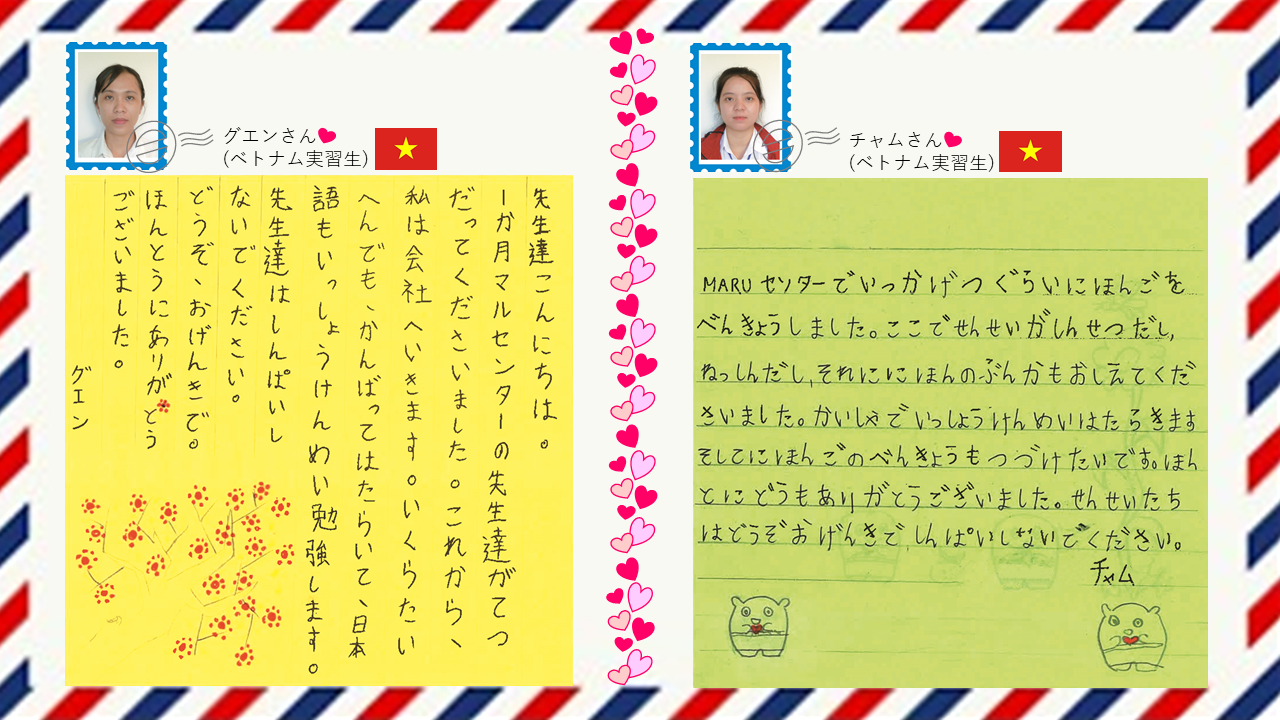 グエンさん
(ベトナム実習生)
先生達こんにちは。
一か月マルセンターの先生達がてつ
だってくださいました。これから、
私は会社へいきます。いくらたい
へんでも、かんばってはたらいて、日本
語もいっしょうけんめい勉強します。
先生達はしんぱいし
ないでください。
どうぞ、おげんきで。
ほんとうにありがとう
ございました。
グエン
チャムさん
(ベトナム実習生)
MARUセンターでいっかげつぐらいにほんごを
べんきょうしました。ここでせんせいがしんせつだし,
ねっしんだし,それににほんのぶんかもおしえてくだ
さいました。かいしゃでいっしょうけんめいはたらきます
そしてにほんごのべんきょうもつづけたいです。ほん
とにどうもありがとうございました。せんせいたち
はどうぞおげんきで,しんぱいしないでください。
チャム